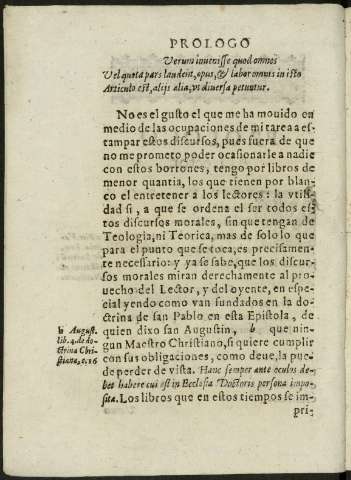 PROLOGO
Verum inuenisse quod omnes
Vel quota pars laudent, opus, & labor omnis in isto
Articulo est, alijs alia, vt diuersa petuntur.
No es el gusto el que me ha mouido en
medio de las ocupaciones de mi tarea a es-
tampar estos discursos, pues fuera de que
no me prometo poder ocasionarle a nadie
con estos borrones, tengo por libros de
menor quantia, los que tienen por blan-
co el entretener a los lectores: la vtili-
dad si, a que se ordena el ser todos es-
tos discursos morales, sin que tengan de
Teologia, ni Teorica, mas de solo lo que
para el punto que se toca, es precisamen-
te necessario: y ya se sabe, que los discur-
sos morales miran derechamente al pro-
uecho del Lector, y del oyente, en espe-
cial yendo como van fundados en la do-
ctrina de san Pablo en esta Epistola, de
quien dixo san Augustin, b que nin-
gun Maestro Christiano, si quiere cumplir
con sus obligaciones, como deue, la pue-
de perder de vista. Hanc semper ante oculos de-
bet habere cui est in Ecclesia Doctoris persona impo-
sita. Los libros que en estos tiempos se im-
pri-
b August.
lib. 4. de do-
ctrina Chri-
stiana, c. 16